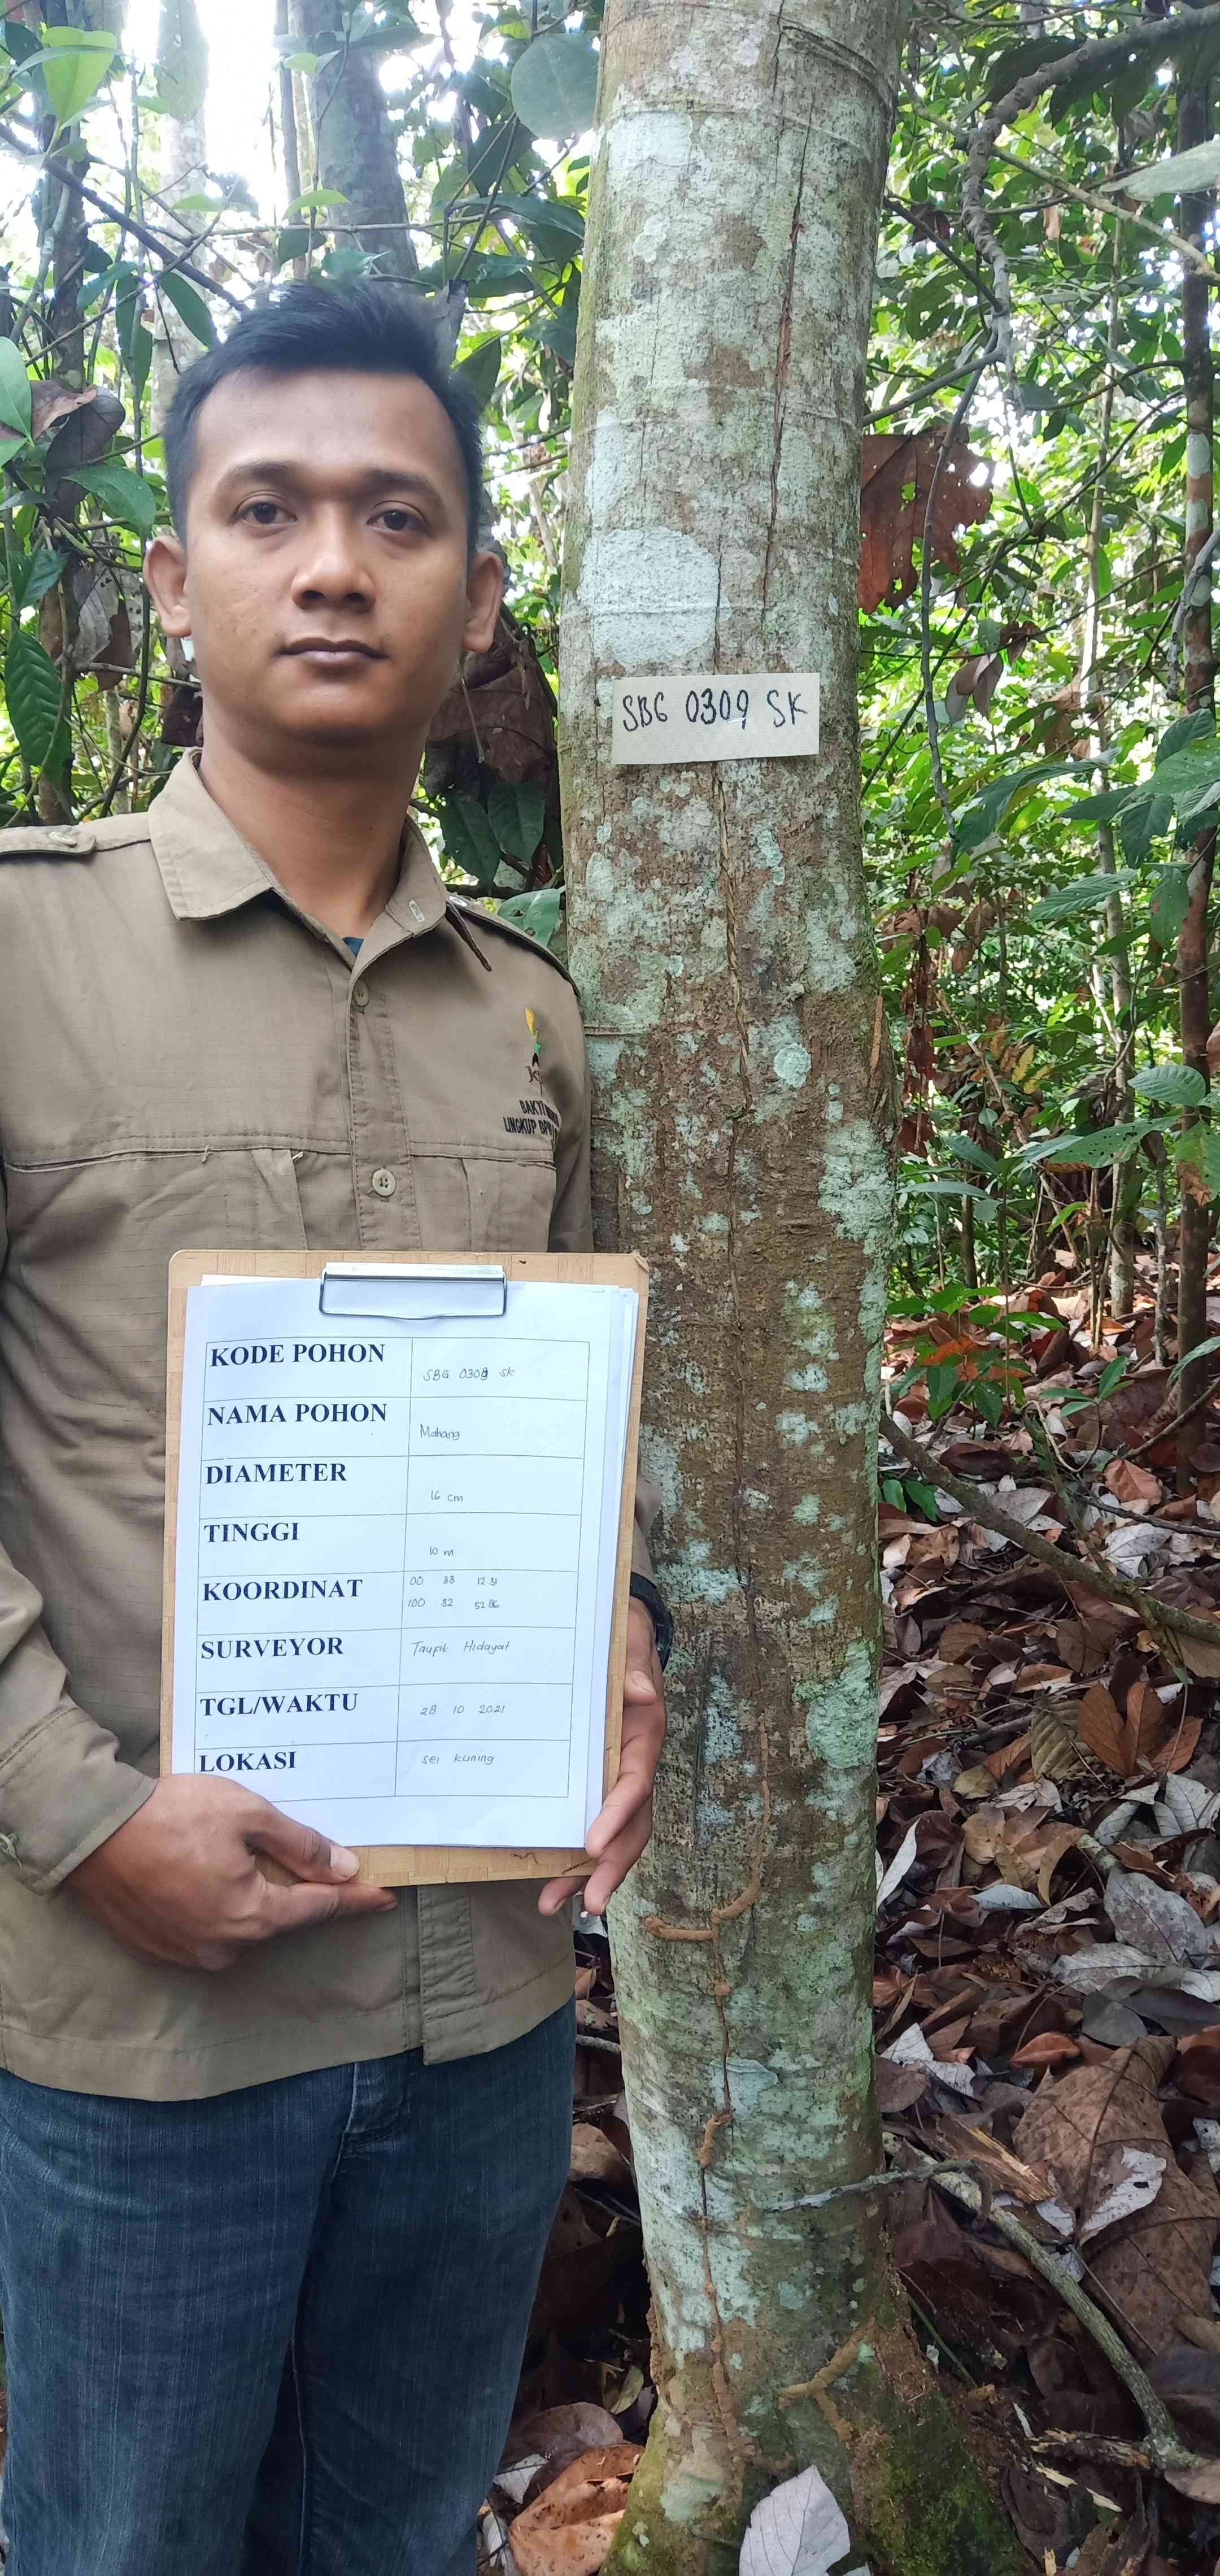 SBG 0309 SK
BAKTI
LINGKUP
KODE POHON SBG 0309 SK
NAMA POHON Mahang
DIAMETER 16 cm
TINGGI 10 m
KOORDINAT 00 33 12.31
100 32 52.86
SURVEYOR Taupik Hidayat
TGL/WAKTU 28 10 2021
LOKASI sei kuning